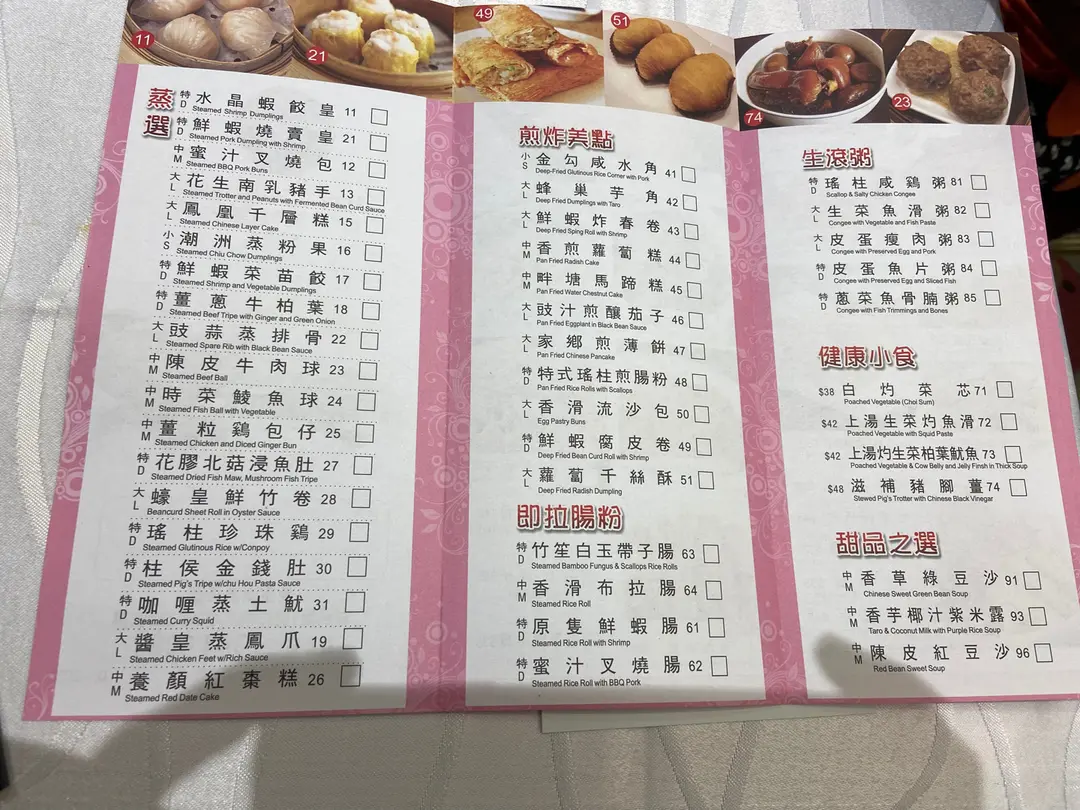 11
21
49
51
74
23
蒸選
特D 水晶蝦餃皇 11
Steamed Shrimp Dumplings
特D 鮮蝦燒賣皇 21
Steamed Pork Dumpling with Shrimp
中M 蜜汁叉燒包 12
Steamed BBQ Pork Buns
大L 花生南乳豬手 13
Steamed Trotter and Peanuts with Fermented Bean Curd Sauce
大L 鳳凰千層糕 15
Steamed Chinese Layer Cake
小S 潮洲蒸粉果 16
Steamed Chiu Chow Dumplings
特D 鮮蝦菜苗餃 17
Steamed Shrimp and Vegetable Dumplings
特D 薑蔥牛柏葉 18
Steamed Beef Tripe with Ginger and Green Onion
大L 豉蒜蒸排骨 22
Steamed Spare Rib with Black Bean Sauce
中M 陳皮牛肉球 23
Steamed Beef Ball
中M 時菜鯪魚球 24
Steamed Fish Ball with Vegetable
中M 薑粒鷄包仔 25
Steamed Chicken and Diced Ginger Bun
特D 花膠北菇浸魚肚 27
Steamed Dried Fish Maw, Mushroom Fish Tripe
大L 蠔皇鮮竹卷 28
Beancurd Sheet Roll in Oyster Sauce
特D 瑤柱珍珠鷄 29
Steamed Glutinous Rice w/Conpoy
特D 柱侯金錢肚 30
Steamed Pig's Tripe w/chu Hou Pasta Sauce
特D 咖喱蒸土魷 31
Steamed Curry Squid
大L 醬皇蒸鳳爪 19
Steamed Chicken Feet w/Rich Sauce
中M 養顏紅棗糕 26
Steamed Red Date Cake
煎炸美點
小S 金勾咸水角 41
Deep-Fried Glutinous Rice Corner with Pork
大L 蜂巢芋角 42
Deep Fried Dumplings with Taro
大L 鮮蝦炸春卷 43
Deep Fried Sping Roll with Shrimp
中M 香煎蘿蔔糕 44
Pan Fried Radish Cake
中M 畔塘馬蹄糕 45
Pan Fried Water Chestnut Cake
大L 豉汁煎釀茄子 46
Pan Fried Eggplant in Black Bean Sauce
大L 家鄉煎薄餅 47
Pan Fried Chinese Pancake
特D 特式瑤柱煎腸粉 48
Pan Fried Rice Rolls with Scallops
大L 香滑流沙包 50
Egg Pastry Buns
特D 鮮蝦腐皮卷 49
Deep Fried Bean Curd Roll with Shrimp
大L 蘿蔔千絲酥 51
Deep Fried Radish Dumpling
即拉腸粉
特D 竹笙白玉帶子腸 63
Steamed Bamboo Fungus & Scallops Rice Rolls
中M 香滑布拉腸 64
Steamed Rice Roll
特D 原隻鮮蝦腸 61
Steamed Rice Roll with Shrimp
特D 蜜汁叉燒腸 62
Steamed Rice Roll with BBQ Pork
生滾粥
特D 瑤柱咸鷄粥 81
Scallop & Salty Chicken Congee
大L 生菜魚滑粥 82
Congee with Vegetable and Fish Paste
大L 皮蛋瘦肉粥 83
Congee with Preserved Egg and Pork
特D 皮蛋魚片粥 84
Congee with Preserved Egg and Sliced Fish
特D 蔥菜魚骨腩粥 85
Congee with Fish Trimmings and Bones
健康小食
$38 白灼菜芯 71
Poached Vegetable (Choi Sum)
$42 上湯生菜灼魚滑 72
Poached Vegetable with Squid Paste
$42 上湯灼生菜柏葉魷魚 73
Poached Vegetable & Cow Belly and Jelly Finsh in Thick Soup
$48 滋補豬腳薑 74
Stewed Pig's Trotter with Chinese Black Vinegar
甜品之選
中M 香草綠豆沙 91
Chinese Sweet Green Bean Soup
中M 香芋椰汁紫米露 93
Taro & Coconut Milk with Purple Rice Soup
中M 陳皮紅豆沙 96
Red Bean Sweet Soup